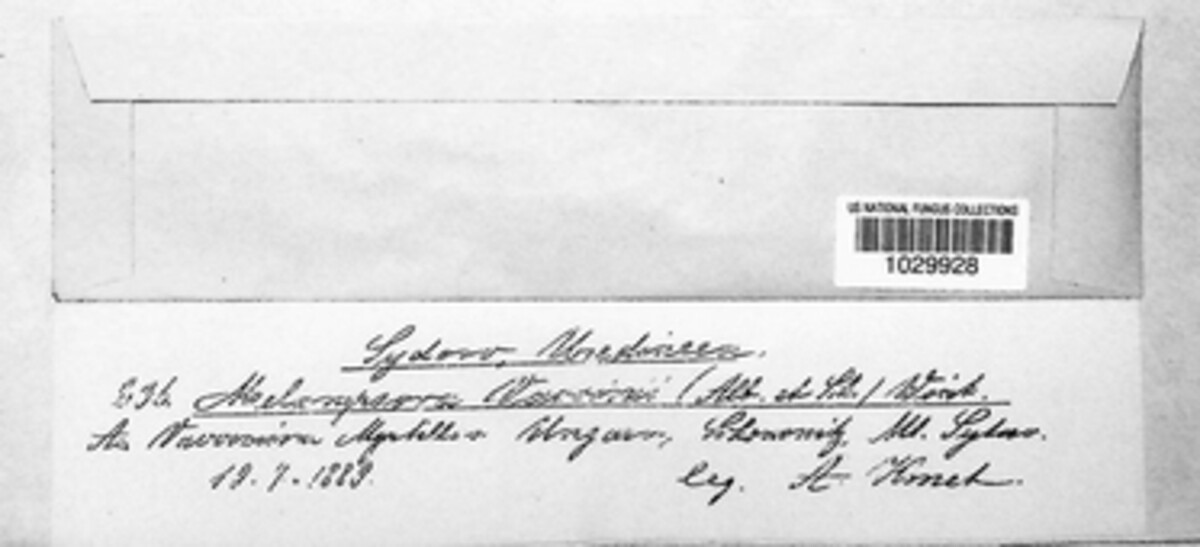 US NATIONAL FUNGUS COLLECTIONS
1029928
Sydow, Uredineen.
Melampsora Vaccinii (Alb. et Sch.) Wint.
Vaccinium Myrtillus Ungarn,
19. 7. 1889. leg. A. Kmet.